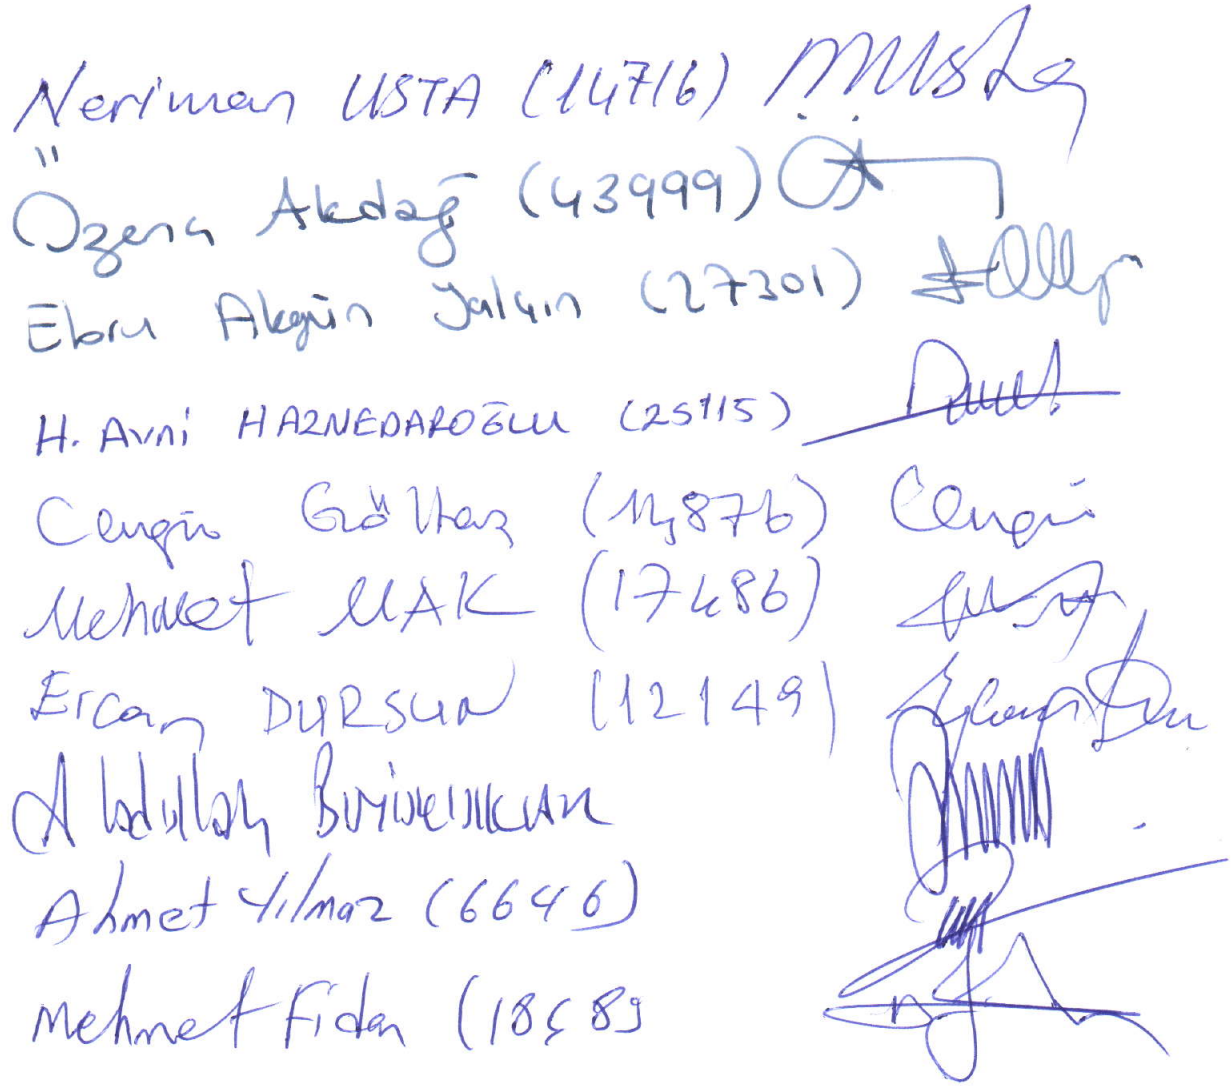 Neriman USTA (14716)
Özenn Akdağ (43999)
Ebru Akgün Yalçın (27301)
H. Avni HAZNEDAROĞLU (25115)
Cengiz Göltaş (14876)
Mehmet MAK (17486)
Ercan DURSUN (12149)
Abdullah
Ahmet Yılmaz (6646)
Mehmet Fidan